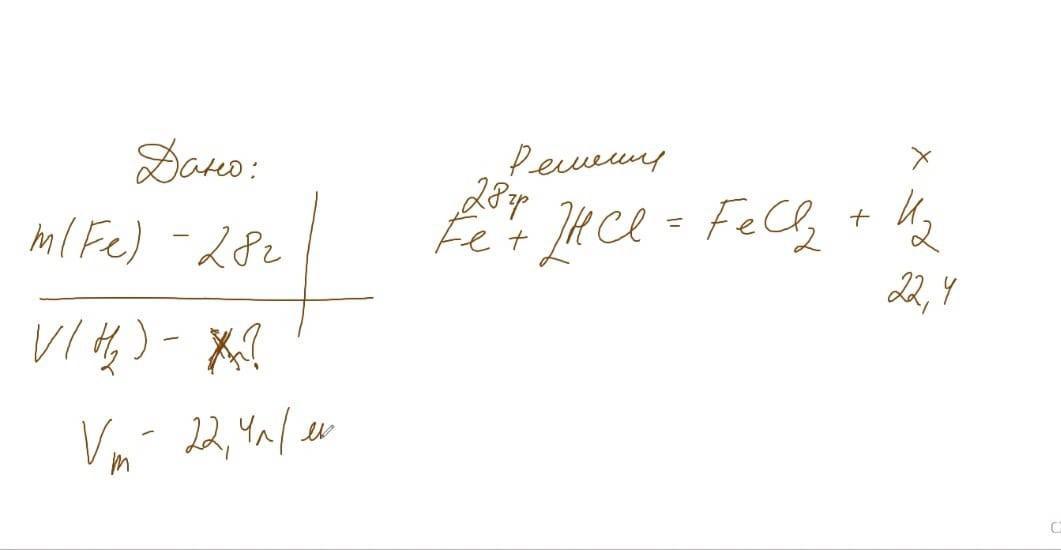 Дано:
m(Fe) - 28г
V(H₂) - Xл?
Vm - 22,4л/м
Решения
28гр
x
Fe + 2HCl = FeCl₂ + H₂
22,4